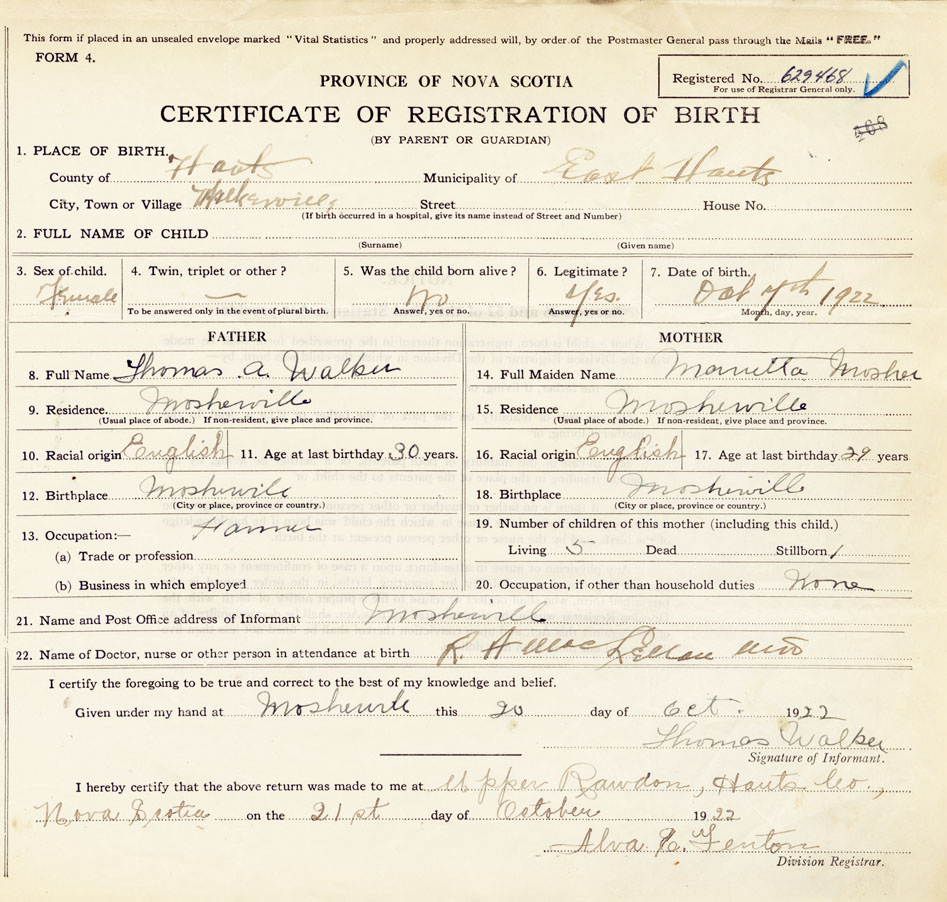 This form if placed in an unsealed envelope marked "Vital Statistics" and properly addressed will, by order of the Postmaster General pass through the Mails "FREE."
FORM 4.
PROVINCE OF NOVA SCOTIA
Registered No. 629468
For use of Registrar General only.
CERTIFICATE OF REGISTRATION OF BIRTH
468
(BY PARENT OR GUARDIAN)
1. PLACE OF BIRTH.
County of Hants Municipality of East Hants
City, Town or Village Street House No.
(If birth occurred in a hospital, give its name instead of Street and Number)
2. FULL NAME OF CHILD
(Surname) (Given name)
3. Sex of child. 4. Twin, triplet or other? 5. Was the child born alive? 6. Legitimate? 7. Date of birth.
Female — No Yes. Oct 7th 1922
To be answered only in the event of plural birth. Answer, yes or no. Answer, yes or no. Month, day, year.
FATHER MOTHER
8. Full Name Thomas A. Walker 14. Full Maiden Name Marietta Mosher
9. Residence. Mosherville 15. Residence Mosherville
(Usual place of abode.) If non-resident, give place and province. (Usual place of abode.) If non-resident, give place and province.
10. Racial origin English 11. Age at last birthday 30 years. 16. Racial origin English 17. Age at last birthday 29 years
12. Birthplace Mosherville 18. Birthplace Mosherville
(City or place, province or country.) (City or place, province or country.)
13. Occupation:— Farmer 19. Number of children of this mother (including this child.)
(a) Trade or profession Living 5 Dead Stillborn 1
(b) Business in which employed 20. Occupation, if other than household duties None
21. Name and Post Office address of Informant Mosherville
22. Name of Doctor, nurse or other person in attendance at birth R. A. MacLellan MD
I certify the foregoing to be true and correct to the best of my knowledge and belief.
Given under my hand at Mosherville this 20 day of Oct. 1922
Thomas Walker
Signature of Informant.
I hereby certify that the above return was made to me at Upper Rawdon, Hants Co.,
Nova Scotia on the 21st day of October 1922
Alva E. Fenton
Division Registrar.